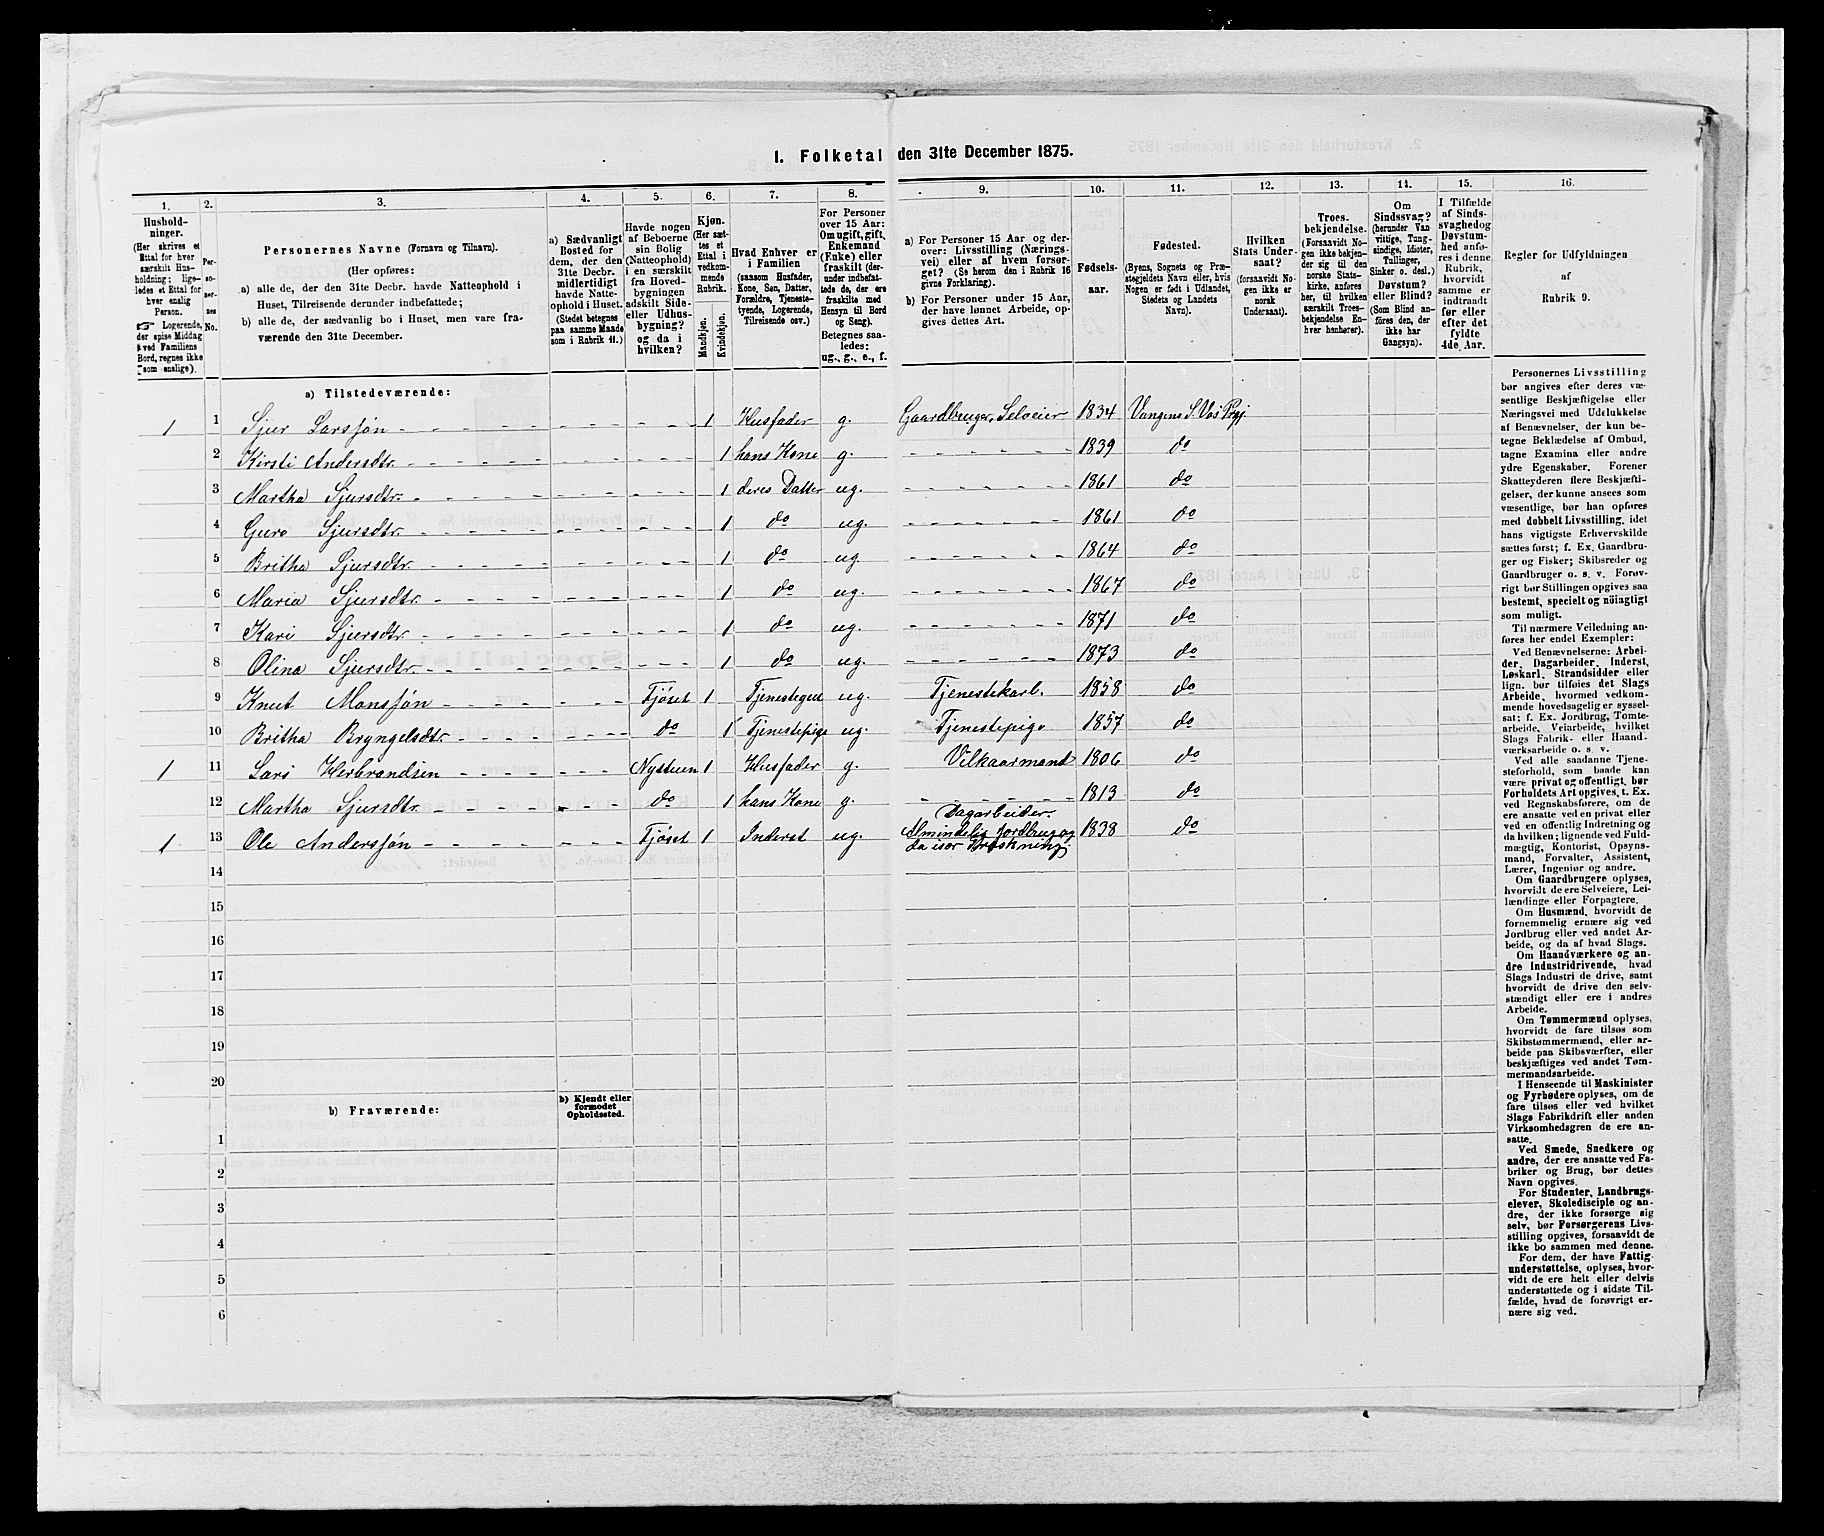 1. Folketal den 31te December 1875.
1. 2. 3. 4. 5. 6. 7. 8. 9. 10. 11. 12. 13. 14. 15. 16.
Hushold-
ninger.
(Her skrives et
Ettal for hver
særskilt Hus-
holdning; lige-
ledes et Ettal for
hver enslig
Person.
☞ Logerende,
der spise Middag
ved Familiens
Bord, regnes ikke
som enslige).
Per-
so-
ner-
nes
No.
Personernes Navne (Fornavn og Tilnavn).
(Her opføres:
a) alle de, der den 31te Decbr. havde Natteophold i
Huset, Tilreisende derunder indbefattede;
b) alle de, der sædvanlig bo i Huset, men vare fra-
værende den 31te December.
a) Sædvanligt
Bosted for
dem, der den
31te Decbr.
midlertidigt
havde Natte-
ophold i Huset.
(Stedet betegnes
paa samme Maade
som i Rubrik 11.)
Havde nogen
af Beboerne
sin Bolig
(Natteophold)
i en særskilt
fra Hoved-
bygningen
adskilt Side-
eller Udhus-
bygning?
og da i
hvilken?
Kjøn.
(Her sæt-
tes et
Ettal i
vedkom-
mende
Rubrik.
Mandkjøn.
Kvindekjøn.
Hvad Enhver er
i Familien
(saasom Husfader,
Kone, Søn, Datter,
Forældre, Tjeneste-
tyende, Logerende,
Tilreisende osv.)
For Personer
over 15 Aar:
Om ugift, gift,
Enkemand
(Enke) eller
fraskilt (der-
under indbefat-
tede de, der ere
fraskilte med
Hensyn til Bord
og Seng).
Betegnes saa-
ledes:
ug., g., e., f.
a) For Personer 15 Aar og der-
over: Livsstilling (Nærings-
vei) eller af hvem forsør-
get? (Se herom den i Rubrik 16
givne Forklaring).
b) For Personer under 15 Aar,
der have lønnet Arbeide, op-
gives dettes Art.
Fødsels-
aar.
Fødested.
(Byens, Sognets og Præ-
stegjeldets Navn eller, hvis
Nogen er født i Udlandet,
Stedets og Landets
Navn).
Hvilken
Stats Under-
saat?
(forsaavidt No-
gen ikke er
norsk
Undersaat).
Troes-
bekjendelse.
(Forsaavidt No-
gen ikke bekjen-
der sig til den
norske Stats-
kirke, anføres
her, til hvilken
særskilt Troes-
bekjendelse En-
hver henhører).
Om
Sindssvag?
(herunder Van-
vittige, Tung-
sindige, Idioter,
Tullinger,
Sinker o. desl.)
Døvstum?
eller Blind?
(Som Blind an-
føres den, der
ikke har
Gangsyn).
I Tilfælde
af Sinds-
svaghed og
Døvstum-
hed anfø-
res i denne
Rubrik,
hvorvidt
samme er
indtraadt
før eller
efter det
fyldte
4de Aar.
Regler for Udfyldningen
af
Rubrik 9.
a) Tilstedeværende:
1 1 Sjur Larssøn 1 Husfader g. Gaardbruger, Selveier 1834 Vangens S. Vos Prgj.
2 Kirsti Andersdtr. 1 hans Kone g. 1839 do
3 Martha Sjursdtr. 1 deres Datter ug. 1861 do
4 Guro Sjursdtr. 1 do ug. 1861 do
5 Britha Sjursdtr. 1 do ug. 1864 do
6 Maria Sjursdtr. 1 do ug. 1867 do
7 Kari Sjursdtr. 1 do ug. 1871 do
8 Olina Sjursdtr. 1 do ug. 1873 do
9 Knut Monssøn Fjøset 1 Tjenestegut ug. Tjenestekarl. 1858 do
10 Britha Bryngelsdtr. do 1 Tjenestepige ug. Tjenestepige 1857 do
1 11 Lars Herbrandsen Nystuen 1 Husfader g. Vilkaarmand 1806 do
12 Martha Sjursdtr. do 1 hans Kone g. 1813 do
1 13 Ole Anderssøn Fjøset 1 Inderst ug. Dagarbeider. 1838 do
Almindelig Jordbrug og
da især Brøkning
14
15
16
17
18
19
20
b) Fraværende:
b) Kjendt eller
formodet
Opholdssted.
1
2
3
4
5
6
Personernes Livsstilling
bør angives efter deres væ-
sentlige Beskjæftigelse eller
Næringsvei med Udelukkelse
af Benævnelser, der kun be-
tegne Beklædelse af Ombud,
tagne Examina eller andre
ydre Egenskaber. Forener
Skatteyderen flere Beskjæfti-
gelser, der kunne ansees som
væsentlige, bør han opføres
med dobbelt Livsstilling, idet
hans vigtigste Erhvervskilde
sættes først; f. Ex. Gaardbru-
ger og Fisker; Skibsreder og
Gaardbruger o. s. v. Forøv-
rigt bør Stillingen opgives saa
bestemt, specielt og nøiagtigt
som muligt.
Til nærmere Veiledning an-
føres her endel Exempler:
Ved Benævnelserne: Arbei-
der, Dagarbeider, Inderst,
Løskarl, Strandsidder eller
lign. bør tilføies det Slags
Arbeide, hvormed vedkom-
mende hovedsagelig er syssel-
sat; f. Ex. Jordbrug, Tomte-
arbeide, Veiarbeide, hvilket
Slags Fabrik- eller Haand-
værksarbeide o. s. v.
Ved alle saadanne Tjene-
steforhold, som baade kan
være privat og offentligt, bør
Forholdets Art opgives, t. Ex.
ved Regnskabsførere, om de
ere ansatte ved en privat eller
ved en offentlig Indretning og
da hvilken; lignende ved Fuld-
mægtig, Kontorist, Opsyns-
mand, Forvalter, Assistent,
Lærer, Ingeniør og andre.
Om Gaardbrugere oplyses,
hvorvidt de ere Selveiere, Lei-
lændinge eller Forpagtere.
Om Husmænd, hvorvidt de
fornemmelig ernære sig ved
Jordbrug eller ved andet Ar-
beide, og da af hvad Slags.
Om Haandværkere og an-
dre Industridrivende, hvad
Slags Industri de drive, samt
hvorvidt de drive den selv-
stændigt eller ere i andres
Arbeide.
Om Tømmermænd oplyses,
hvorvidt de fare tilsøs som
Skibstømmermænd, eller ar-
beide paa Skibsværfter, eller
beskjæftiges ved andet Tøm-
mermandsarbeide.
I Henseende til Maskinister
og Fyrbødere oplyses, om de
fare tilsøs eller ved hvilket
Slags Fabrikdrift eller anden
Virksomhedsgren de ere an-
satte.
Ved Smede, Snedkere og
andre, der ere ansatte ved Fa-
briker og Brug, bør dettes
Navn opgives.
For Studenter, Landbrugs-
elever, Skoledisciple og an-
dre, der ikke forsørge sig
selv, bør Forsørgerens Livs-
stilling opgives, forsaavidt de
ikke bo sammen med denne.
For dem, der have Fattig-
understøttelse, oplyses, hvor-
vidt de ere helt eller delvis
understøttede og i sidste Til-
fælde, hvad de forøvrigt er-
nære sig ved.